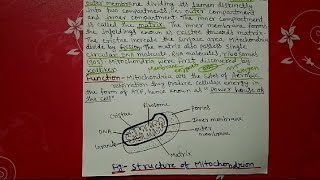 outer membrane dividing its lumen distinctly
into two compartments i.e outer compartment
and inner compartment. The inner compartment
is called the matrix. The inner membrane forms
the infoldings known as cristae towards matrix.
The cristae increase the surface area. Mitochondria
divide by fission. The matrix also possess single
circular DNA molecule, RNA molecules, ribosomes
(70S). Mitochondria were first discovered by
Kolliker.
Function:- Mitochondria are the sites of Aerobic
respiration. They produce cellular energy in
the form of ATP, hence known as "Power house of
the cell".
Ribosome
Cristae
Porins
Inner membrane
DNA
outer
membrane
Granule
Matrix
Fig:- Structure of Mitochondrion